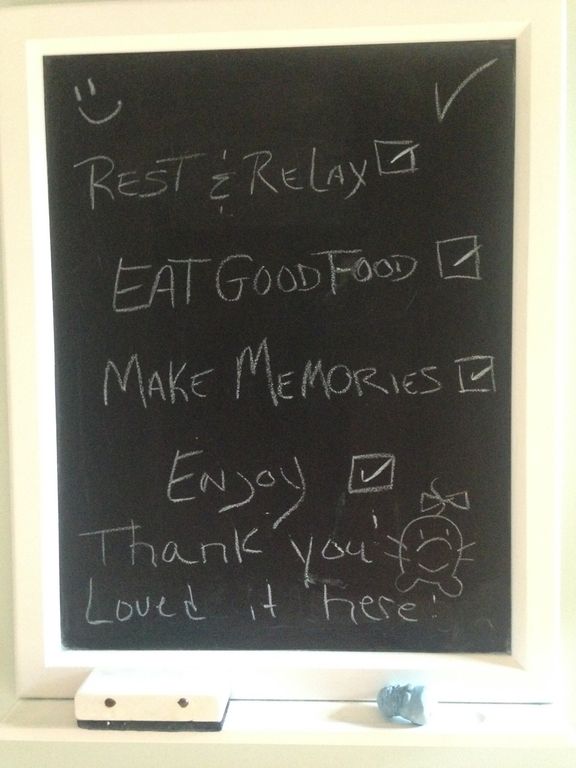 REST & RELAX
EAT GOOD FOOD
MAKE MEMORIES
ENJOY
Thank you!
Loved it here!